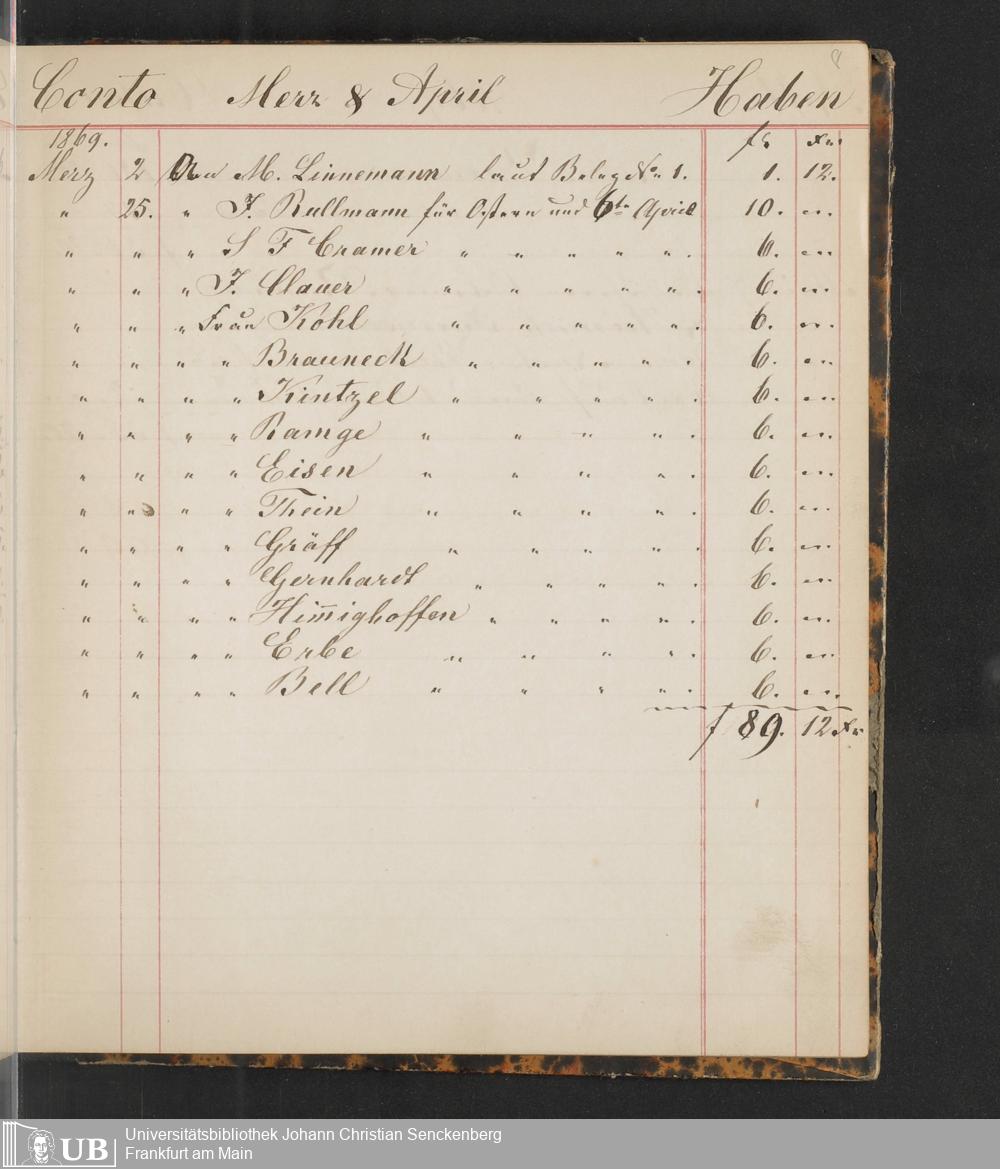 Conto Merz & April Haben
1869. fr xr
Merz 2 An M. Linnemann laut Beleg No 1. 1. 12.
" 25. " J. Rullmann für Ostern und 6te April 10. "
" " " S F Cramer " " " " " 6. "
" " " J. Clauer " " " " " 6. "
" " " Frau Kohl " " " " " 6. "
" " " " Brauneck " " " " " 6. "
" " " " Kintzel " " " " 6. "
" " " " Ramge " " " " 6. "
" " " " Eisen " " " " 6. "
" " " " Thein " " " " 6. "
" " " " Gräff " " " " 6. "
" " " " Gernhardt " " " " 6. "
" " " " Him̅ighoffen " " " " 6. "
" " " " Erbe " " " " 6. "
" " " " Bell " " " " 6. "
f 89. 12 xr
UB
Universitätsbibliothek Johann Christian Senckenberg
Frankfurt am Main